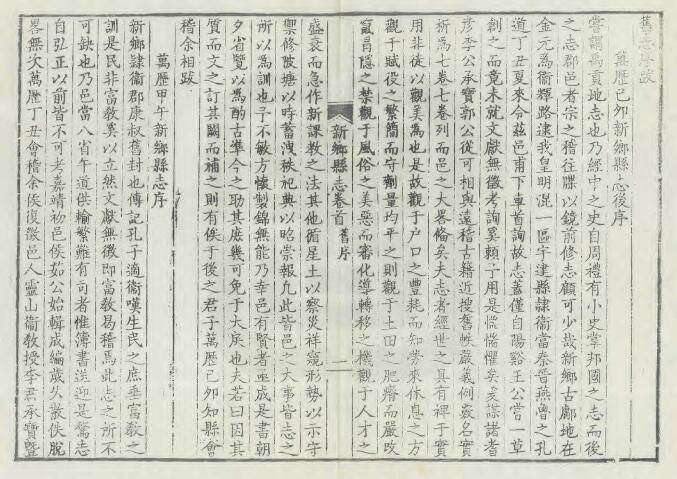 舊志序跋
萬歷己卯新鄉縣志後序
嘗謂禹貢地志也乃經中之史自周禮有小史掌邦國之志而後
之志郡邑者宗之稽往牒以鏡前修志顧可少哉新鄉古鄘地在
金元為衞輝路逮我皇明混一區宇建縣隸衞當秦晉燕魯之孔
道丁丑夏來令茲邑甫下車首詢故志蓋僅自陽谿王公嘗一草
創之而竟未就文獻無徵考詢奚賴予用是慌慌懼矣爰謀諸耆
彥李公承寶郭公從可相與遠稽古籍近搜舊帙嚴義例覈名實
析為七卷七卷列而邑之大畧備矣夫志者經世之具有裨于實
用非徒以觀美為也是故觀于户口之豐耗而知勞來休息之方
觀于賦役之繁簡而守劑量均平之則觀于土田之肥瘠而嚴
竄冒隱之禁觀于風俗之美惡而審化導轉移之機觀于人才之
新鄉縣志卷首 舊序 一
盛衰而急作新課教之法其他循星土以察災祥窺形勢以示守
禦修陂塘以時蓄洩秩祀典以昭崇報凡此皆邑之大事皆志之
所以為訓也予不敏方懷製錦無能乃幸邑有賢者亟成是書朝
夕省覽以為酌古準今之助其庶幾可免于大戾也夫若曰因其
質而文之訂其闕而補之則有俟于後之君子萬歷己卯知縣會
稽余相跋
萬歷甲午新鄉縣志序
新鄉隸衞郡康叔舊封也傳記孔子適衞嘆生民之庶垂富教之
訓是民非富教奚以立然文獻無徵即富教曷稽焉此志之所不
可缺也乃邑當八省午道供輸繁雖有司者惟簿書送迎是騖志
自弘正以前皆不可考嘉靖初邑侯如公始輯成編歲久散佚脫
畧無次萬歷丁丑會稽余侯復徵邑人靈山衞教授李君承寶暨